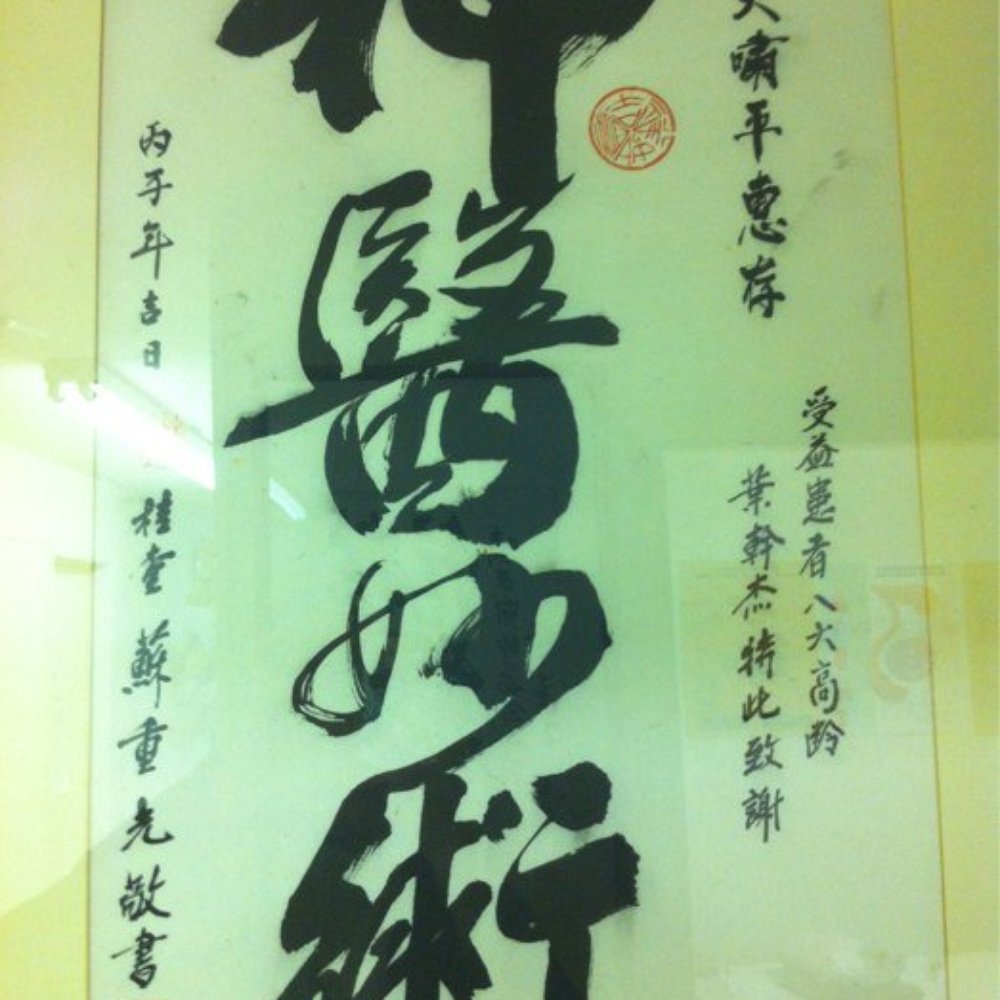 嘯平惠存
受益患者八六高齡
葉幹杰特此致謝
神醫妙術
丙子年吉日
桂堂蘇重光敬書